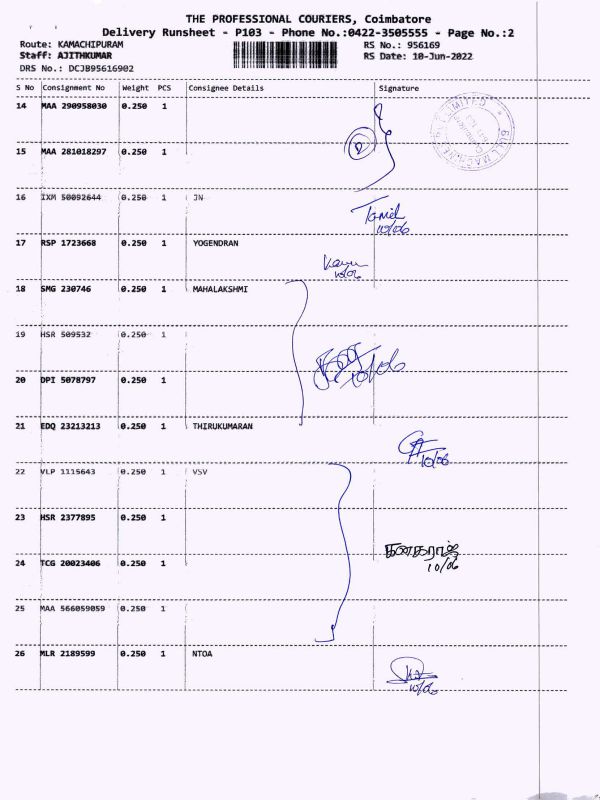 THE PROFESSIONAL COURIERS, Coimbatore
Delivery Runsheet - P103 - Phone No.:0422-3505555 - Page No.:2
Route: KAMACHIPURAM RS No.: 956169
Staff: AJITHKUMAR RS Date: 10-Jun-2022
DRS No.: DCJB95616902
S No Consignment No Weight PCS Consignee Details Signature
14 MAA 290958030 0.250 1
15 MAA 281018297 0.250 1
16 IXM 50092644 0.250 1 JN
Tamil
10/06
17 RSP 1723668 0.250 1 YOGENDRAN
10/06
18 SMG 230746 0.250 1 MAHALAKSHMI
19 HSR 509532 0.250 1
10/06
20 DPI 5078797 0.250 1
21 EDQ 23213213 0.250 1 THIRUKUMARAN
10/06
22 VLP 1115643 0.250 1 VSV
23 HSR 2377895 0.250 1
கனகராஜ்
10/06
24 TCG 20023406 0.250 1
25 MAA 566059059 0.250 1
26 MLR 2189599 0.250 1 NTOA
10/06